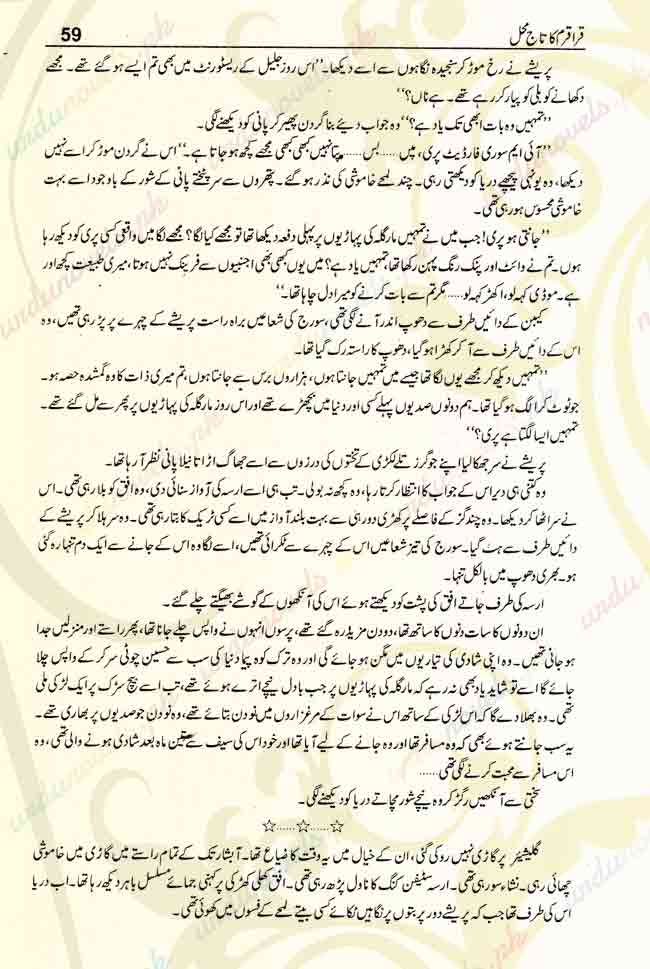 قراقرم کا تاج محل 59
پریشے نے رخ موڑ کر سنجیدہ نگاہوں سے اسے دیکھا۔ ”اس روز جلیل کے ریسٹورنٹ میں بھی تم ایسے ہو گئے تھے۔ مجھے
دکھانے کو بلی کو پیار کر رہے تھے۔ ہے ناں؟“
”تمہیں وہ بات ابھی تک یاد ہے؟“ وہ جواب دیئے بنا گردن پھیر کر پانی کو دیکھنے لگی۔
”آئی ایم سوری فار ڈیٹ پری، میں ...... بس ...... پتا نہیں کبھی کبھی مجھے کچھ ہو جاتا ہے۔“ اس نے گردن موڑ کر اسے نہیں
دیکھا، وہ یونہی پیچھے دریا کو دیکھتی رہی۔ چند لمحے خاموشی کی نذر ہو گئے۔ پتھروں سے سر پٹختے پانی کے شور کے باوجود اسے بہت
خاموشی محسوس ہو رہی تھی۔
”جانتی ہو پری! جب میں نے تمہیں مارگلہ کی پہاڑیوں پر پہلی دفعہ دیکھا تھا تو مجھے کیا لگا؟ مجھے لگا میں واقعی کسی پری کو دیکھ رہا
ہوں۔ تم نے وائٹ اور پنک رنگ پہن رکھا تھا، تمہیں یاد ہے؟ میں یوں کبھی بھی اجنبیوں سے فرینک نہیں ہوتا، میری طبیعت کچھ اور
ہے۔ موڈی کہہ لو، اکھڑ کہہ لو ...... مگر تم سے بات کرنے کو میرا دل چاہا تھا۔“
کیبن کے دائیں طرف سے دھوپ اندر آنے لگی تھی، سورج کی شعاعیں براہ راست پریشے کے چہرے پر پڑ رہی تھیں، وہ
اس کے دائیں طرف سے آ کر کھڑا ہو گیا، دھوپ کا راستہ رک گیا تھا۔
”تمہیں دیکھ کر مجھے یوں لگا تھا جیسے میں تمہیں جانتا ہوں، ہزاروں برس سے جانتا ہوں، تم میری ذات کا وہ گمشدہ حصہ ہو۔
جو ٹوٹ کر الگ ہو گیا تھا۔ ہم دونوں صدیوں پہلے کسی اور دنیا میں بچھڑے تھے اور اس روز مارگلہ کی پہاڑیوں پر پھر سے مل گئے تھے۔
تمہیں ایسا لگتا ہے پری؟“
پریشے نے سر جھکا لیا اپنے جوگرز تلے لکڑی کے تختوں کی درزوں سے اسے جھاگ اڑاتا نیلا پانی نظر آ رہا تھا۔
وہ کتنی ہی دیر اس کے جواب کا انتظار کرتا رہا، وہ کچھ نہ بولی۔ تب ہی اسے ارسہ کی آواز سنائی دی، وہ افق کو بلا رہی تھی۔ اس
نے سر اٹھا کر دیکھا۔ وہ چند گز کے فاصلے پر کھڑی دور ہی سے بہت بلند آواز میں اسے کسی ٹریک کا بتا رہی تھی۔ وہ سر ہلا کر پریشے کے
دائیں طرف سے ہٹ گیا۔ سورج کی تیز شعاعیں اس کے چہرے سے ٹکرائی تھیں، اسے لگا وہ اس کے جانے سے ایک دم تنہا رہ گئی
ہو۔ بھری دھوپ میں بالکل تنہا۔
ارسہ کی طرف جاتے افق کی پشت کو دیکھتے ہوئے اس کی آنکھوں کے گوشے بھیگتے چلے گئے۔
ان دونوں کا سات دنوں کا ساتھ تھا، دو دن مزید رہ گئے تھے، پرسوں انہوں نے واپس چلے جانا تھا، پھر راستے اور منزلیں جدا
ہو جانی تھیں۔ وہ اپنی شادی کی تیاریوں میں مگن ہو جائے گی اور وہ ترک کوہ پیما دنیا کی سب سے حسین چوٹی سر کر کے واپس چلا
جائے گا اسے تو شاید یاد بھی نہ رہے کہ مارگلہ کی پہاڑیوں پر جب بادل نیچے اترے ہوئے تھے، تب اسے بیچ سڑک پر ایک لڑکی ملی
تھی۔ وہ بھلا دے گا کہ اس لڑکی کے ساتھ اس نے سوات کے مرغزاروں میں نو دن بتائے تھے، وہ نو دن جو صدیوں پر بھاری تھے۔
یہ سب جانتے ہوئے بھی کہ وہ مسافر تھا اور وہ جانے کے لیے آیا تھا اور خود اس کی سیف سے تین ماہ بعد شادی ہونے والی تھی، وہ
اس مسافر سے محبت کرنے لگی تھی ......
سختی سے آنکھیں رگڑ کر وہ نیچے شور مچاتے دریا کو دیکھنے لگی۔
☆......☆......☆
گلیشیئر پر گاڑی نہیں روکی گئی، ان کے خیال میں یہ وقت کا ضیاع تھا۔ آبشار تک کے تمام راستے میں گاڑی میں خاموشی
چھائی رہی۔ نشاء سو رہی تھی۔ ارسہ سٹیفن کنگ کا ناول پڑھ رہی تھی۔ افق کھلی کھڑکی پر کہنی جمائے مسلسل باہر دیکھ رہا تھا۔ اب دریا
اس کی طرف تھا جب کہ پریشے دور پربتوں پر نگاہیں ٹکائے کسی بیتے لمحے کے فسوں میں کھوئی تھی۔